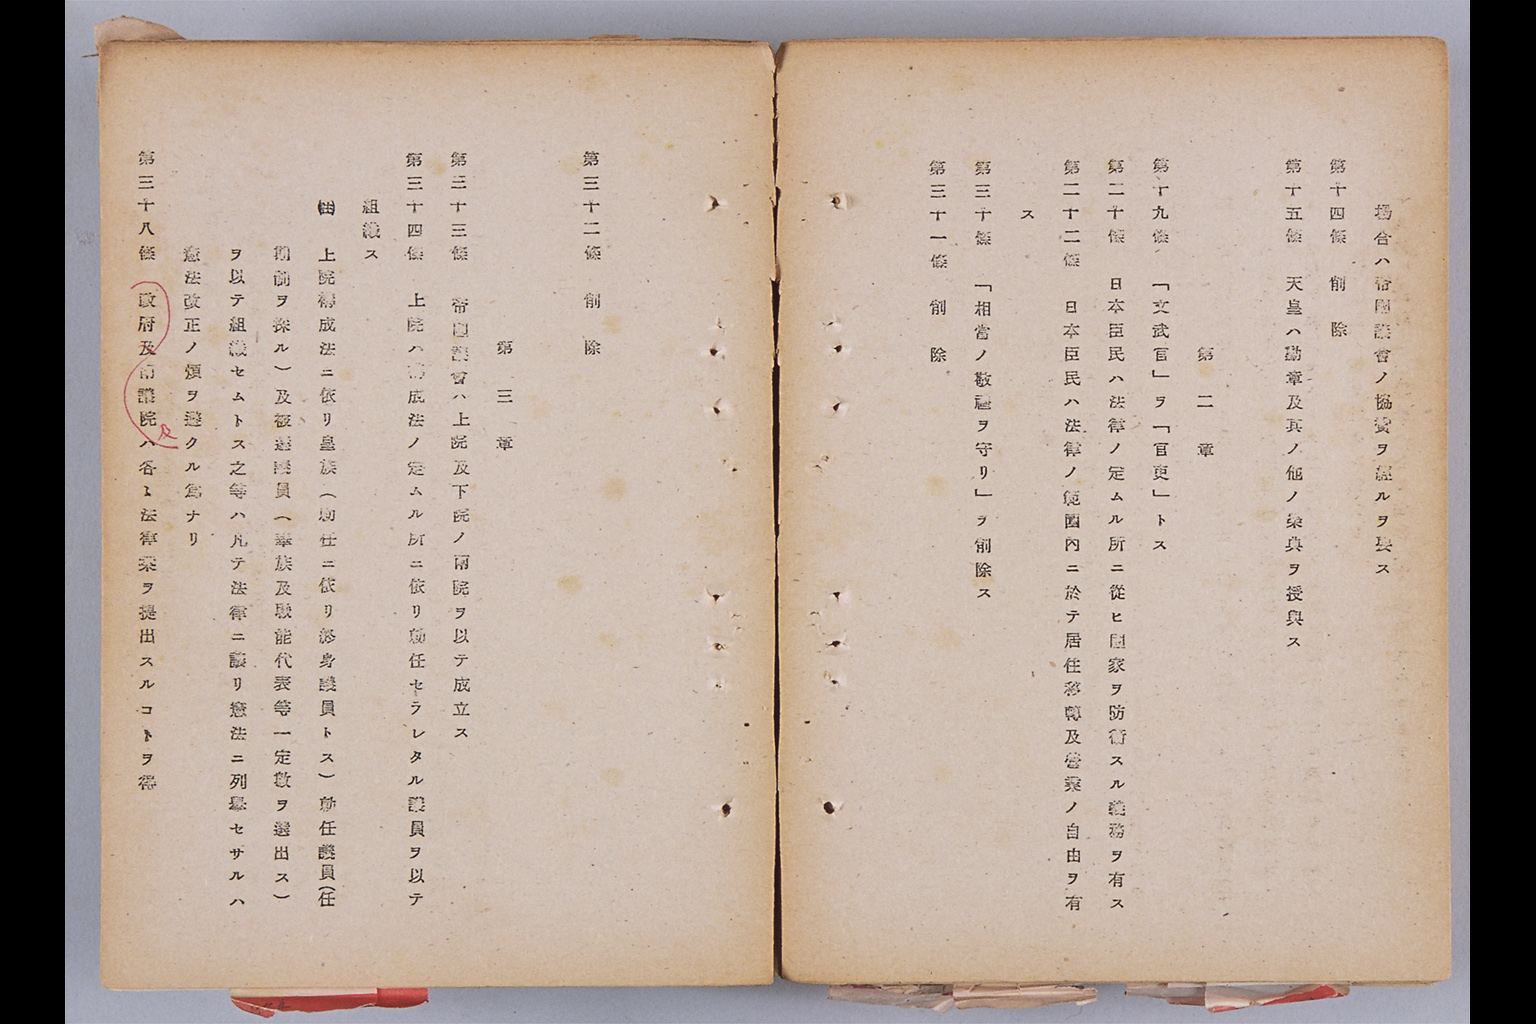 場合ハ帝國議會ノ協賛ヲ經ルヲ要ス
第十四條 削除
第十五條 天皇ハ勳章及其ノ他ノ榮典ヲ授與ス
第二章
第十九條 「文武官」ヲ「官吏」トス
第二十條 日本臣民ハ法律ノ定ムル所ニ從ヒ國家ヲ防衛スル義務ヲ有ス
第二十二條 日本臣民ハ法律ノ範圍内ニ於テ居住移轉及營業ノ自由ヲ有
ス
第三十條 「相當ノ敬禮ヲ守リ」ヲ削除ス
第三十一條 削除
第三十二條 削除
第三章
第三十三條 帝國議會ハ上院及下院ノ兩院ヲ以テ成立ス
第三十四條 上院ハ構成法ノ定ムル所ニ依リ勅任セラレタル議員ヲ以テ
組織ス
㊟ 上院構成法ニ依リ皇族（勅任ニ依リ終身議員トス）勅任議員（任
期制ヲ採ル）及被選議員（華族及職能代表等一定數ヲ選出ス）
ヲ以テ組織セムトス之等ハ凡テ法律ニ讓リ憲法ニ列擧セサルハ
憲法改正ノ煩ヲ避クル爲ナリ
第三十八條 政府及兩議院ハ各〻法律案ヲ提出スルコトヲ得
及